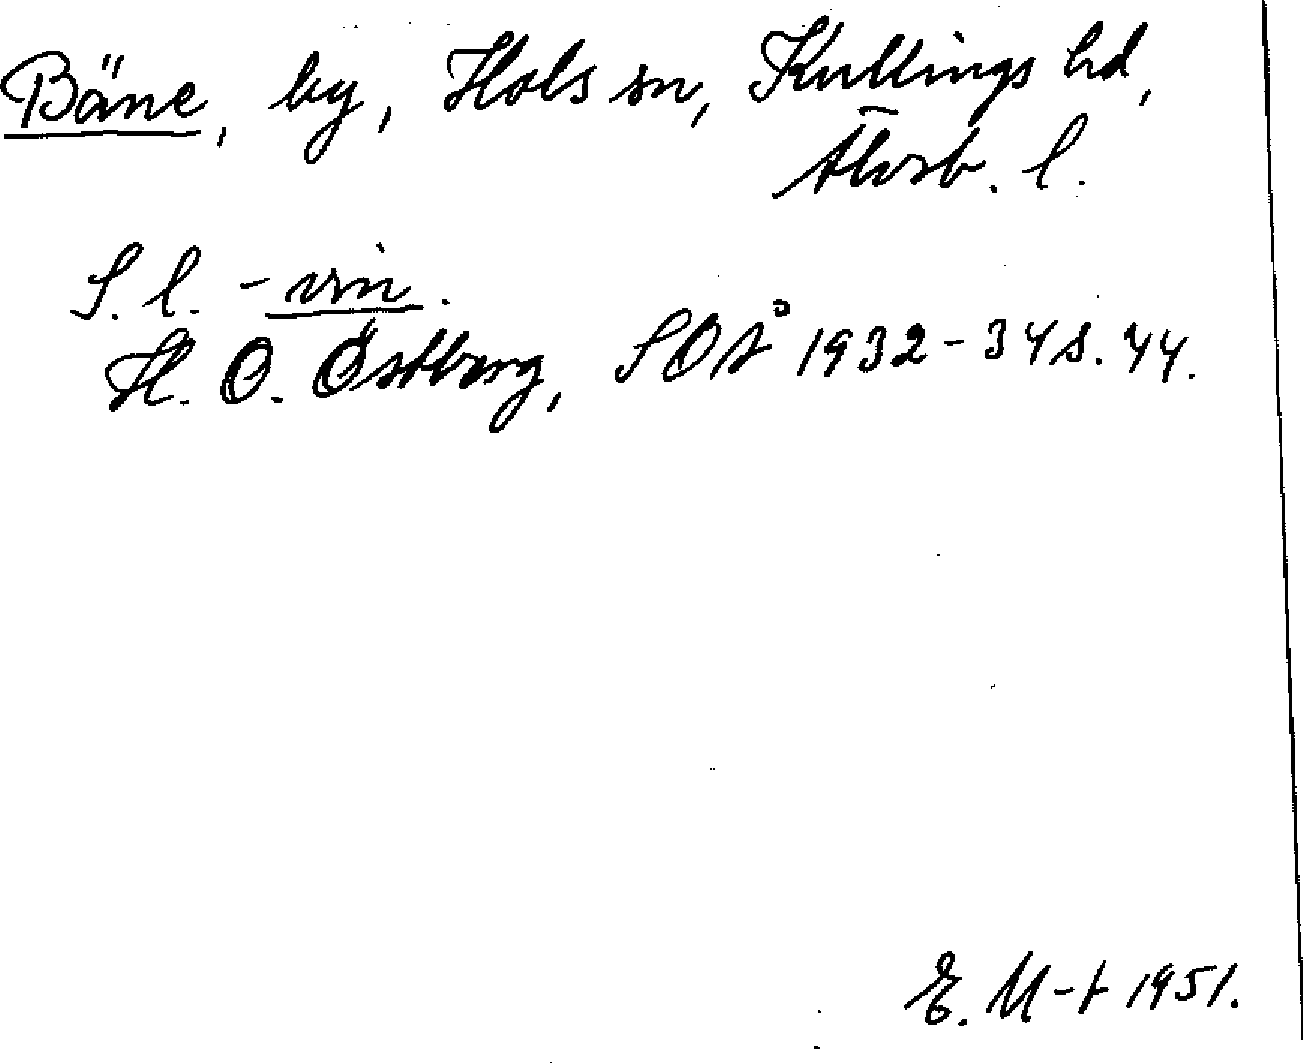 Bäne, by, Hols sn, Kullings hd,
Älvsb. l.
S. l. -vin.
H. O. Östberg, SOÅ 1932-34 s. 44.
E. M-t 1951.